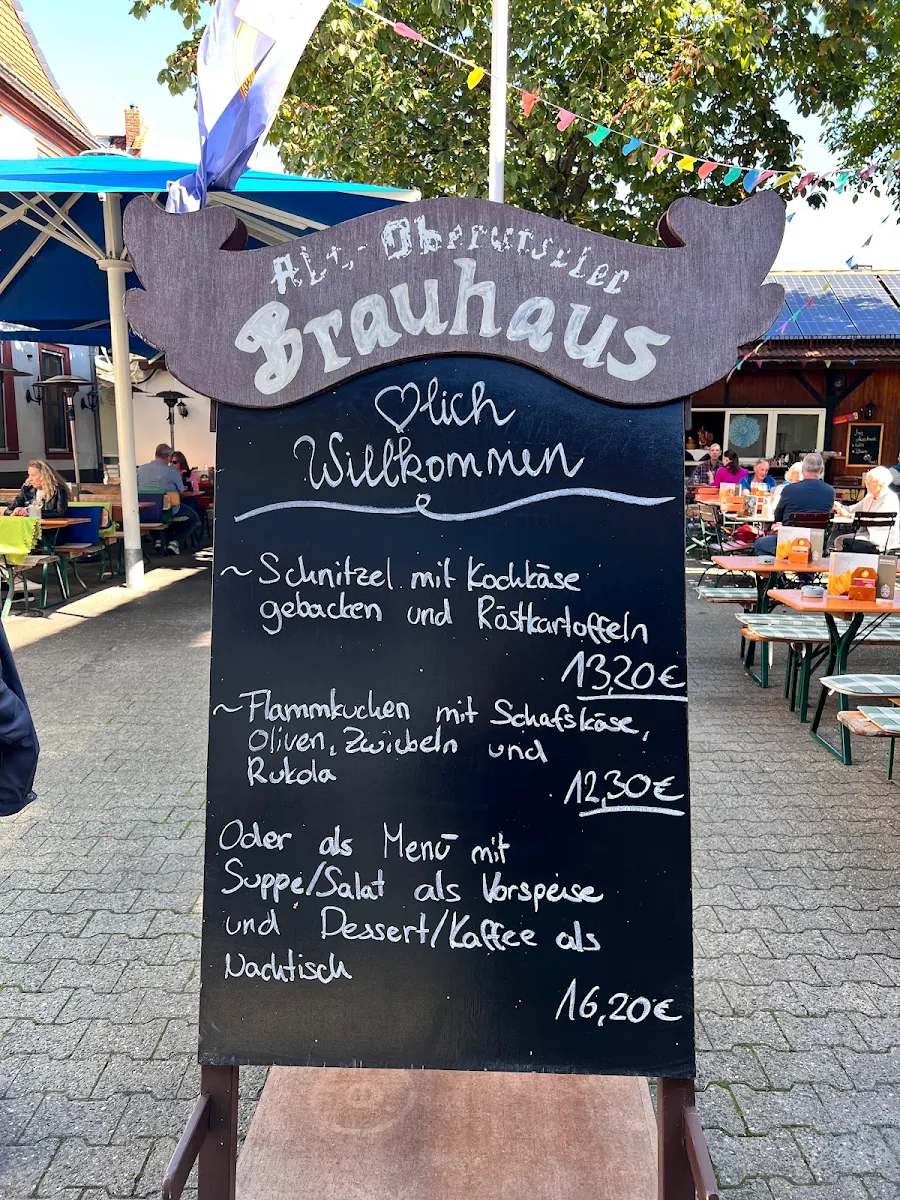 Alt-Oberurseler
Brauhaus
♡lich
Willkommen
~ Schnitzel mit Kochkäse
gebacken und Röstkartoffeln
13,20€
~ Flammkuchen mit Schafskäse,
Oliven, Zwiebeln und
Rukola
12,30€
Oder als Menü mit
Suppe/Salat als Vorspeise
und Dessert/Kaffee als
Nachtisch
16,20€